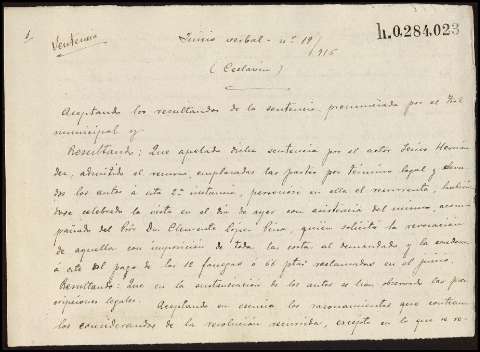 1
Sentencia
Juicio verbal - nº 19/915
h.0.284.023
(Ceclavin)
Aceptando los resultandos de la sentencia pronunciada por el
municipal y
Resultando: Que apelada dicha sentencia por el actor Hernan
dez, admitido el recurso, emplazadas las partes por término legal y
dos los autos á esta 2ª instancia, personose en ella el recurrente, habién
dose celebrado la vista en el día de ayer con asistencia del mismo, acom
pañado del Don Clemente López quien solicitó la revocación
de aquella con imposicion de todas las costas al demandado y la condena
á este del pago de las 12 fanegas ó 66 ptas reclamadas en el juicio.
Resultando: Que en la sustanciación de los autos se han observado las pres
cripciones legales. Aceptando en esencia los razonamientos que contienen
los considerandos de la resolución recurrida, excepto en lo que se re-